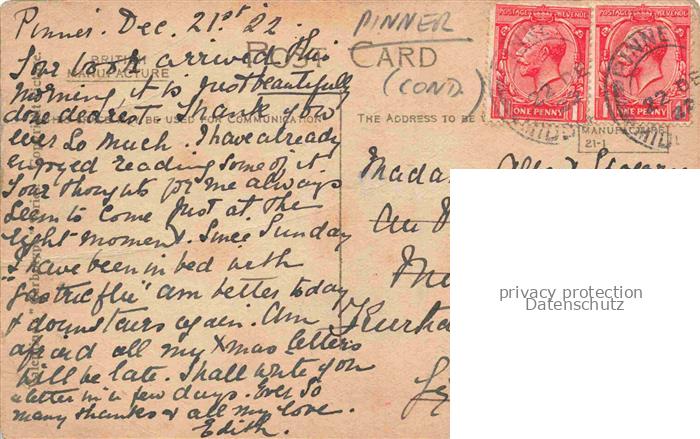 Pinner. Dec. 21st 22.
Your book arrived this
morning it is just beautifully
done dearest thank you
ever so much. I have already
enjoyed reading some of it.
Your thoughts for me always
seem to come just at the
right moment. Since Sunday
I have been in bed with
"gastric flu" am better today
& downstairs again. Am
afraid all my Xmas letters
will be late. I shall write you
a letter in a few days. Ever so
many thanks & all my love.
Edith.
BRITISH
MANUFACTURE
PINNER
POST CARD
(COND)
BE USED FOR COMMUNICATION
THE ADDRESS TO BE
POSTAGE REVENUE
ONE PENNY
POSTAGE REVENUE
ONE PENNY
PINNE
22 DE
MIDD
MANUFACTURE
21-1
Madam
au
Kurha
privacy protection
Datenschutz